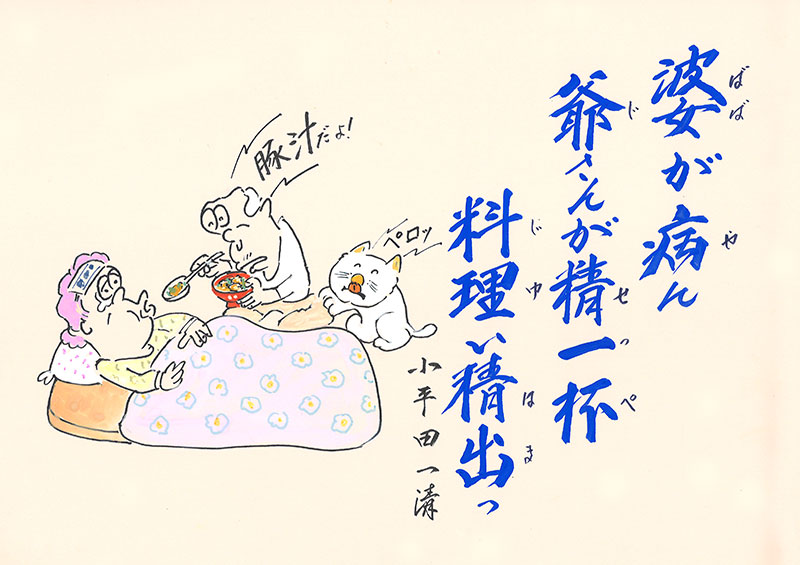 婆が病ん
ばば や
爺さんが精一杯
じ せっぺ
料理い精出っ
じゆ はま
小平田一清
豚汁だよ！
ペロッ